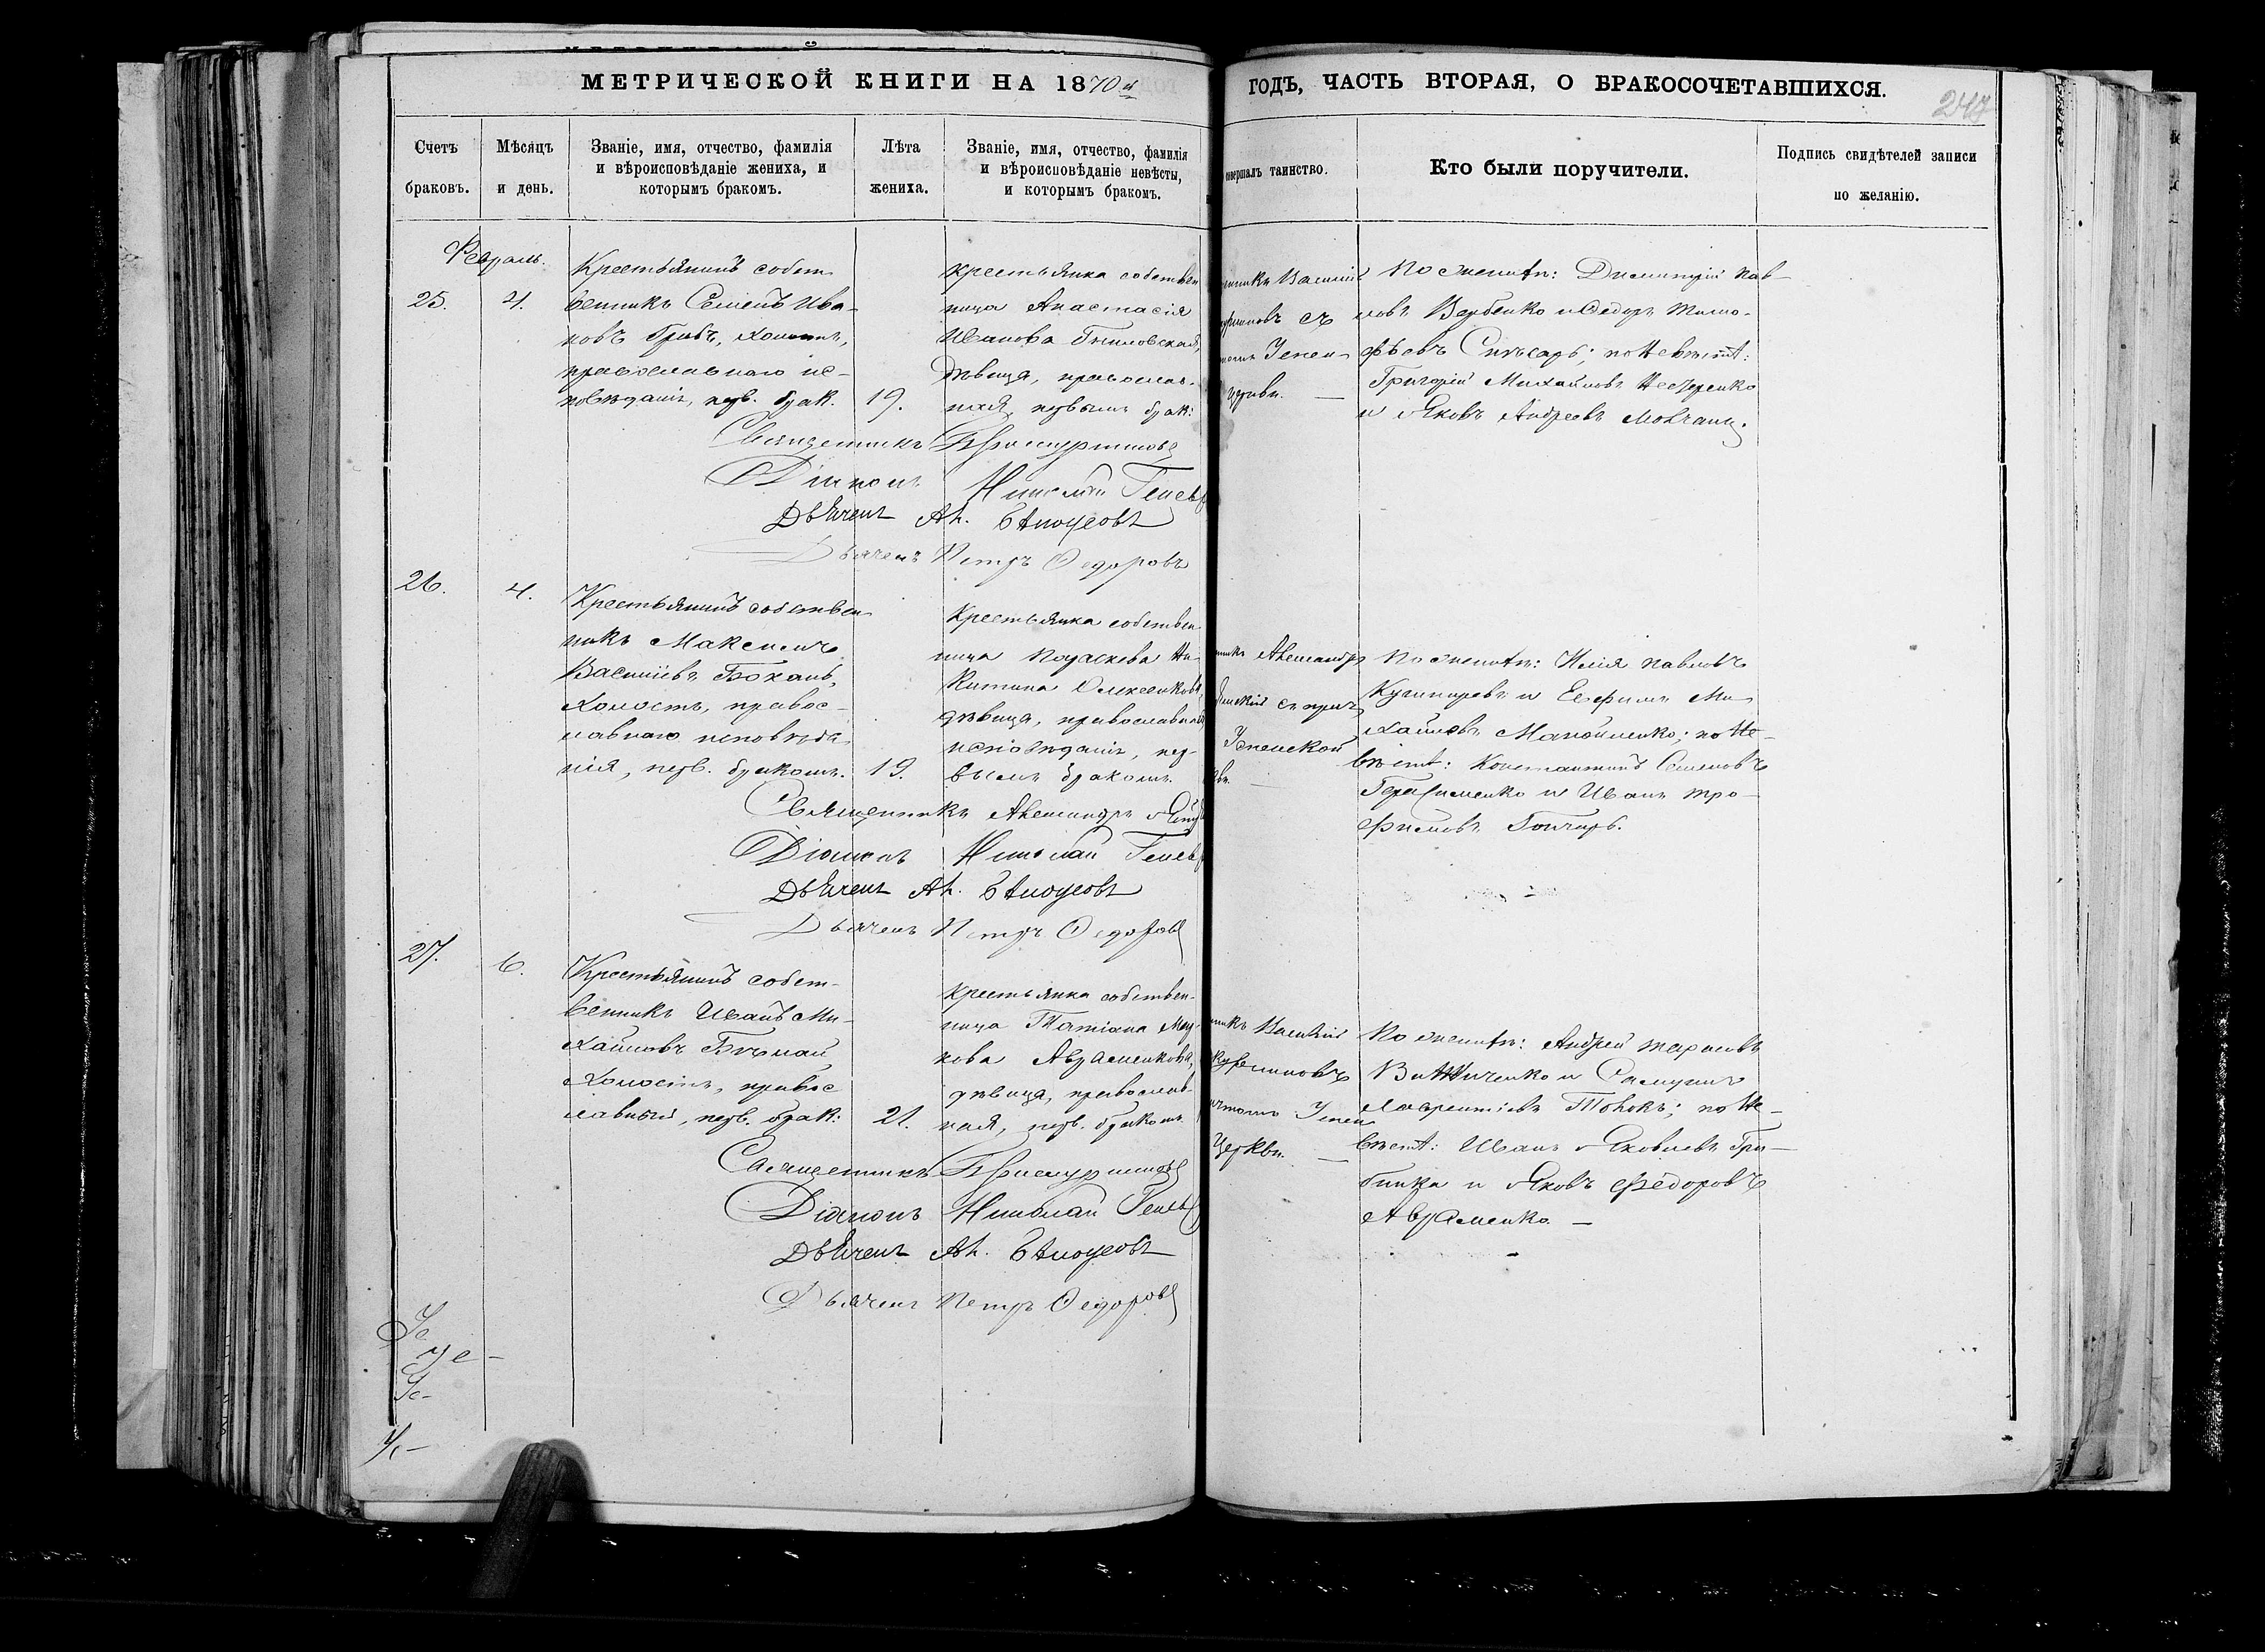 МЕТРИЧЕСКОЙ КНИГИ НА 1870й
ГОДЪ, ЧАСТЬ ВТОРАЯ, О БРАКОСОЧЕТАВШИХСЯ.
247
Счетъ браковъ.
Мѣсяцъ и день.
Званіе, имя, отчество, фамилія
и вѣроисповѣданіе жениха, и
которымъ бракомъ.
Лѣта жениха.
Званіе, имя, отчество, фамилія
и вѣроисповѣданіе невѣсты,
и которымъ бракомъ.
совершалъ таинство.
Кто были поручители.
Подпись свидѣтелей записи
по желанію.
Февраль.
25.
4.
Крестьянинъ собст-
венникъ Семенъ Ива-
новъ Грибъ, холостъ,
православнаго ис-
повѣданія, перв. брак.
19.
крестьянка собствен
ница Анастасія
Иванова
дѣвица, православ-
ная, первымъ брак:
Василій
съ
Успен-
церкви.
По женихѣ: Димитрій Пав-
ловъ Вербенко и Ѳедоръ Тимо-
фѣевъ Слѣсарь; по невѣстѣ:
Григорій Михайловъ Нестеренко
и Яковъ Андреевъ Мовчанъ.
Священникъ
Діаконъ Николай
Дьячекъ Ал. Бѣлоусовъ
Дьячекъ Петръ Ѳедоровъ
26.
4.
Крестьянинъ собствен
никъ Максимъ
Васильевъ Боханъ,
холостъ, правос-
лавнаго исповѣда-
нія, перв. бракомъ.
19.
Крестьянка собствен-
ница Параскева Ни-
китина Олексенкова,
дѣвица, православнаго
исповѣданія, пер-
вымъ бракомъ.
Александръ
съ прич
Успенской
По женихѣ: Илія Павловъ
Кушнаревъ и Евфимъ Ми-
хайловъ Манойленко; по не-
вѣстѣ: Константинъ Семеновъ
Герасименко и Иванъ Тро-
фимовъ Гончаръ.
Священникъ Александръ
Діаконъ Николай
Дьячекъ Ал. Бѣлоусовъ
Дьячекъ Петръ Ѳедоровъ
27.
6.
Крестьянинъ собст-
венникъ Иванъ Ми-
хайловъ
холостъ, правос
лавный, перв. брак:
21.
крестьянка собствен-
ница Татіана Мар-
кова Авраменкова,
дѣвица, православ-
ная, перв. бракомъ
Василій
Успен
Церкви.
По женихѣ: Андрей Тарасовъ
Винниченко и Самуилъ
Лаврентіевъ; по не-
вѣстѣ: Иванъ Яковлевъ Гри-
бинка и Яковъ Федоровъ
Авраменко.
Священникъ
Діаконъ Николай
Дьячекъ Ал. Бѣлоусовъ
Дьячекъ Петръ Ѳедоровъ